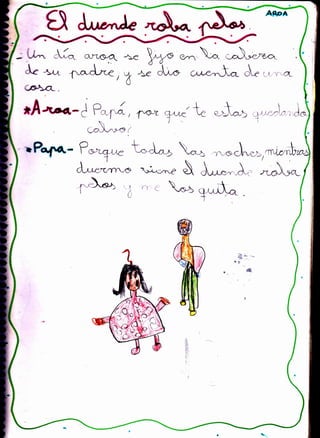 AROA
El duende roba pelos.
- Un día aroa se fijo en la cabeza
de su padre, y se dio cuenta de una
cosa.
*Aroa- ¿Papá, por qué te estas quedando
calvo?
*Papa- Porque todas las noches, mientras
duermo viene el duende roba
pelos y me los quita.
?